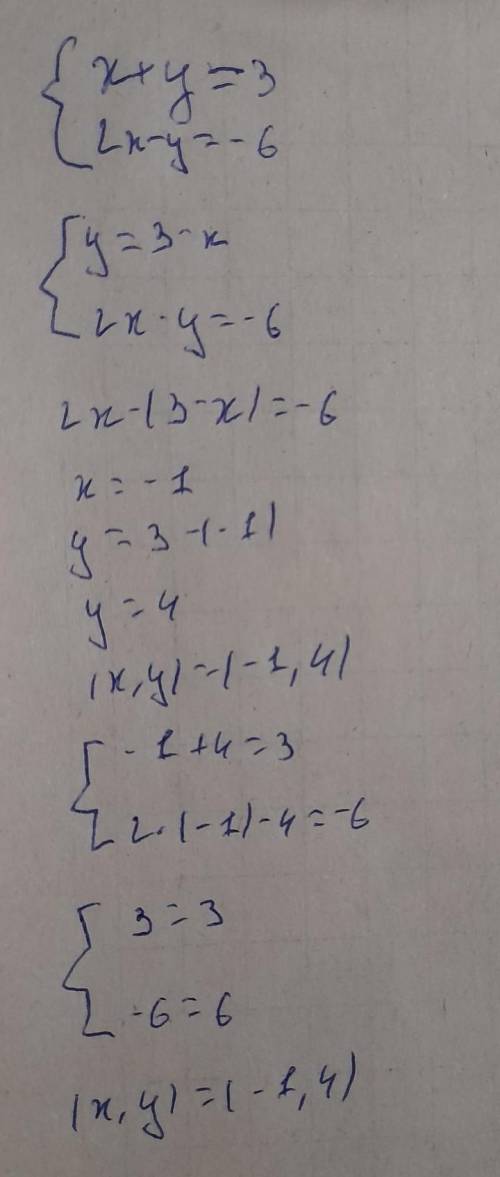 x+y=3
2x-y=-6
y=3-x
2x-y=-6
2x-(3-x)=-6
x=-1
y=3-(-1)
y=4
(x,y)=(-1,4)
-1+4=3
2·(-1)-4=-6
3=3
-6=6
(x,y)=(-1,4)